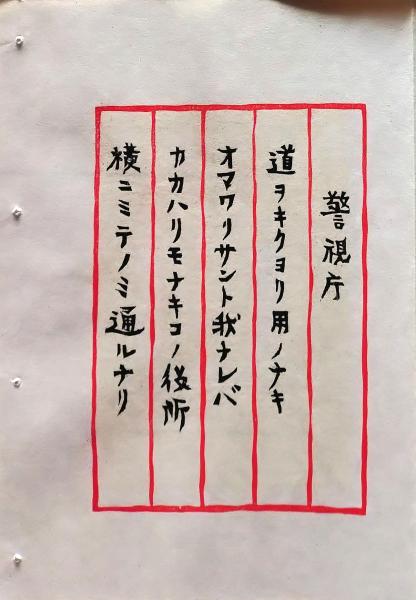 警視庁
道ヲキクヨリ用ノナキ
オマワリサント我ナレバ
カカハリモナキコノ役所
横ニミテノミ通ルナリ